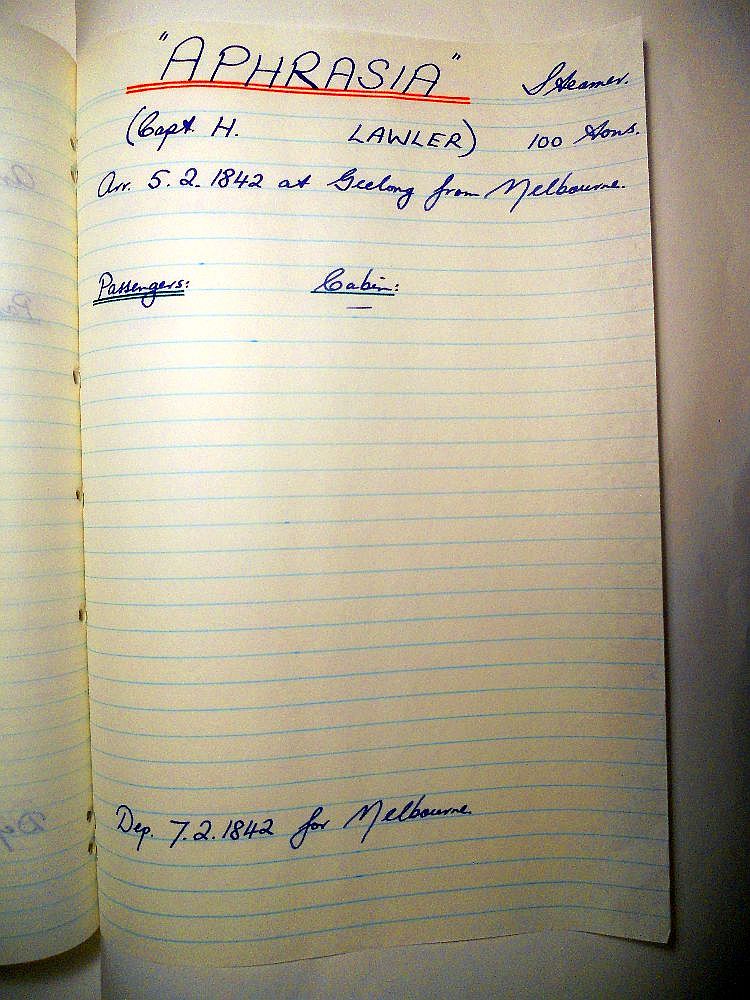 "APHRASIA" Steamer.
(Capt. H. LAWLER) 100 tons.
Arr. 5.2.1842 at Geelong from Melbourne.
Passengers: Cabin:
—
Dep. 7.2.1842 for Melbourne.